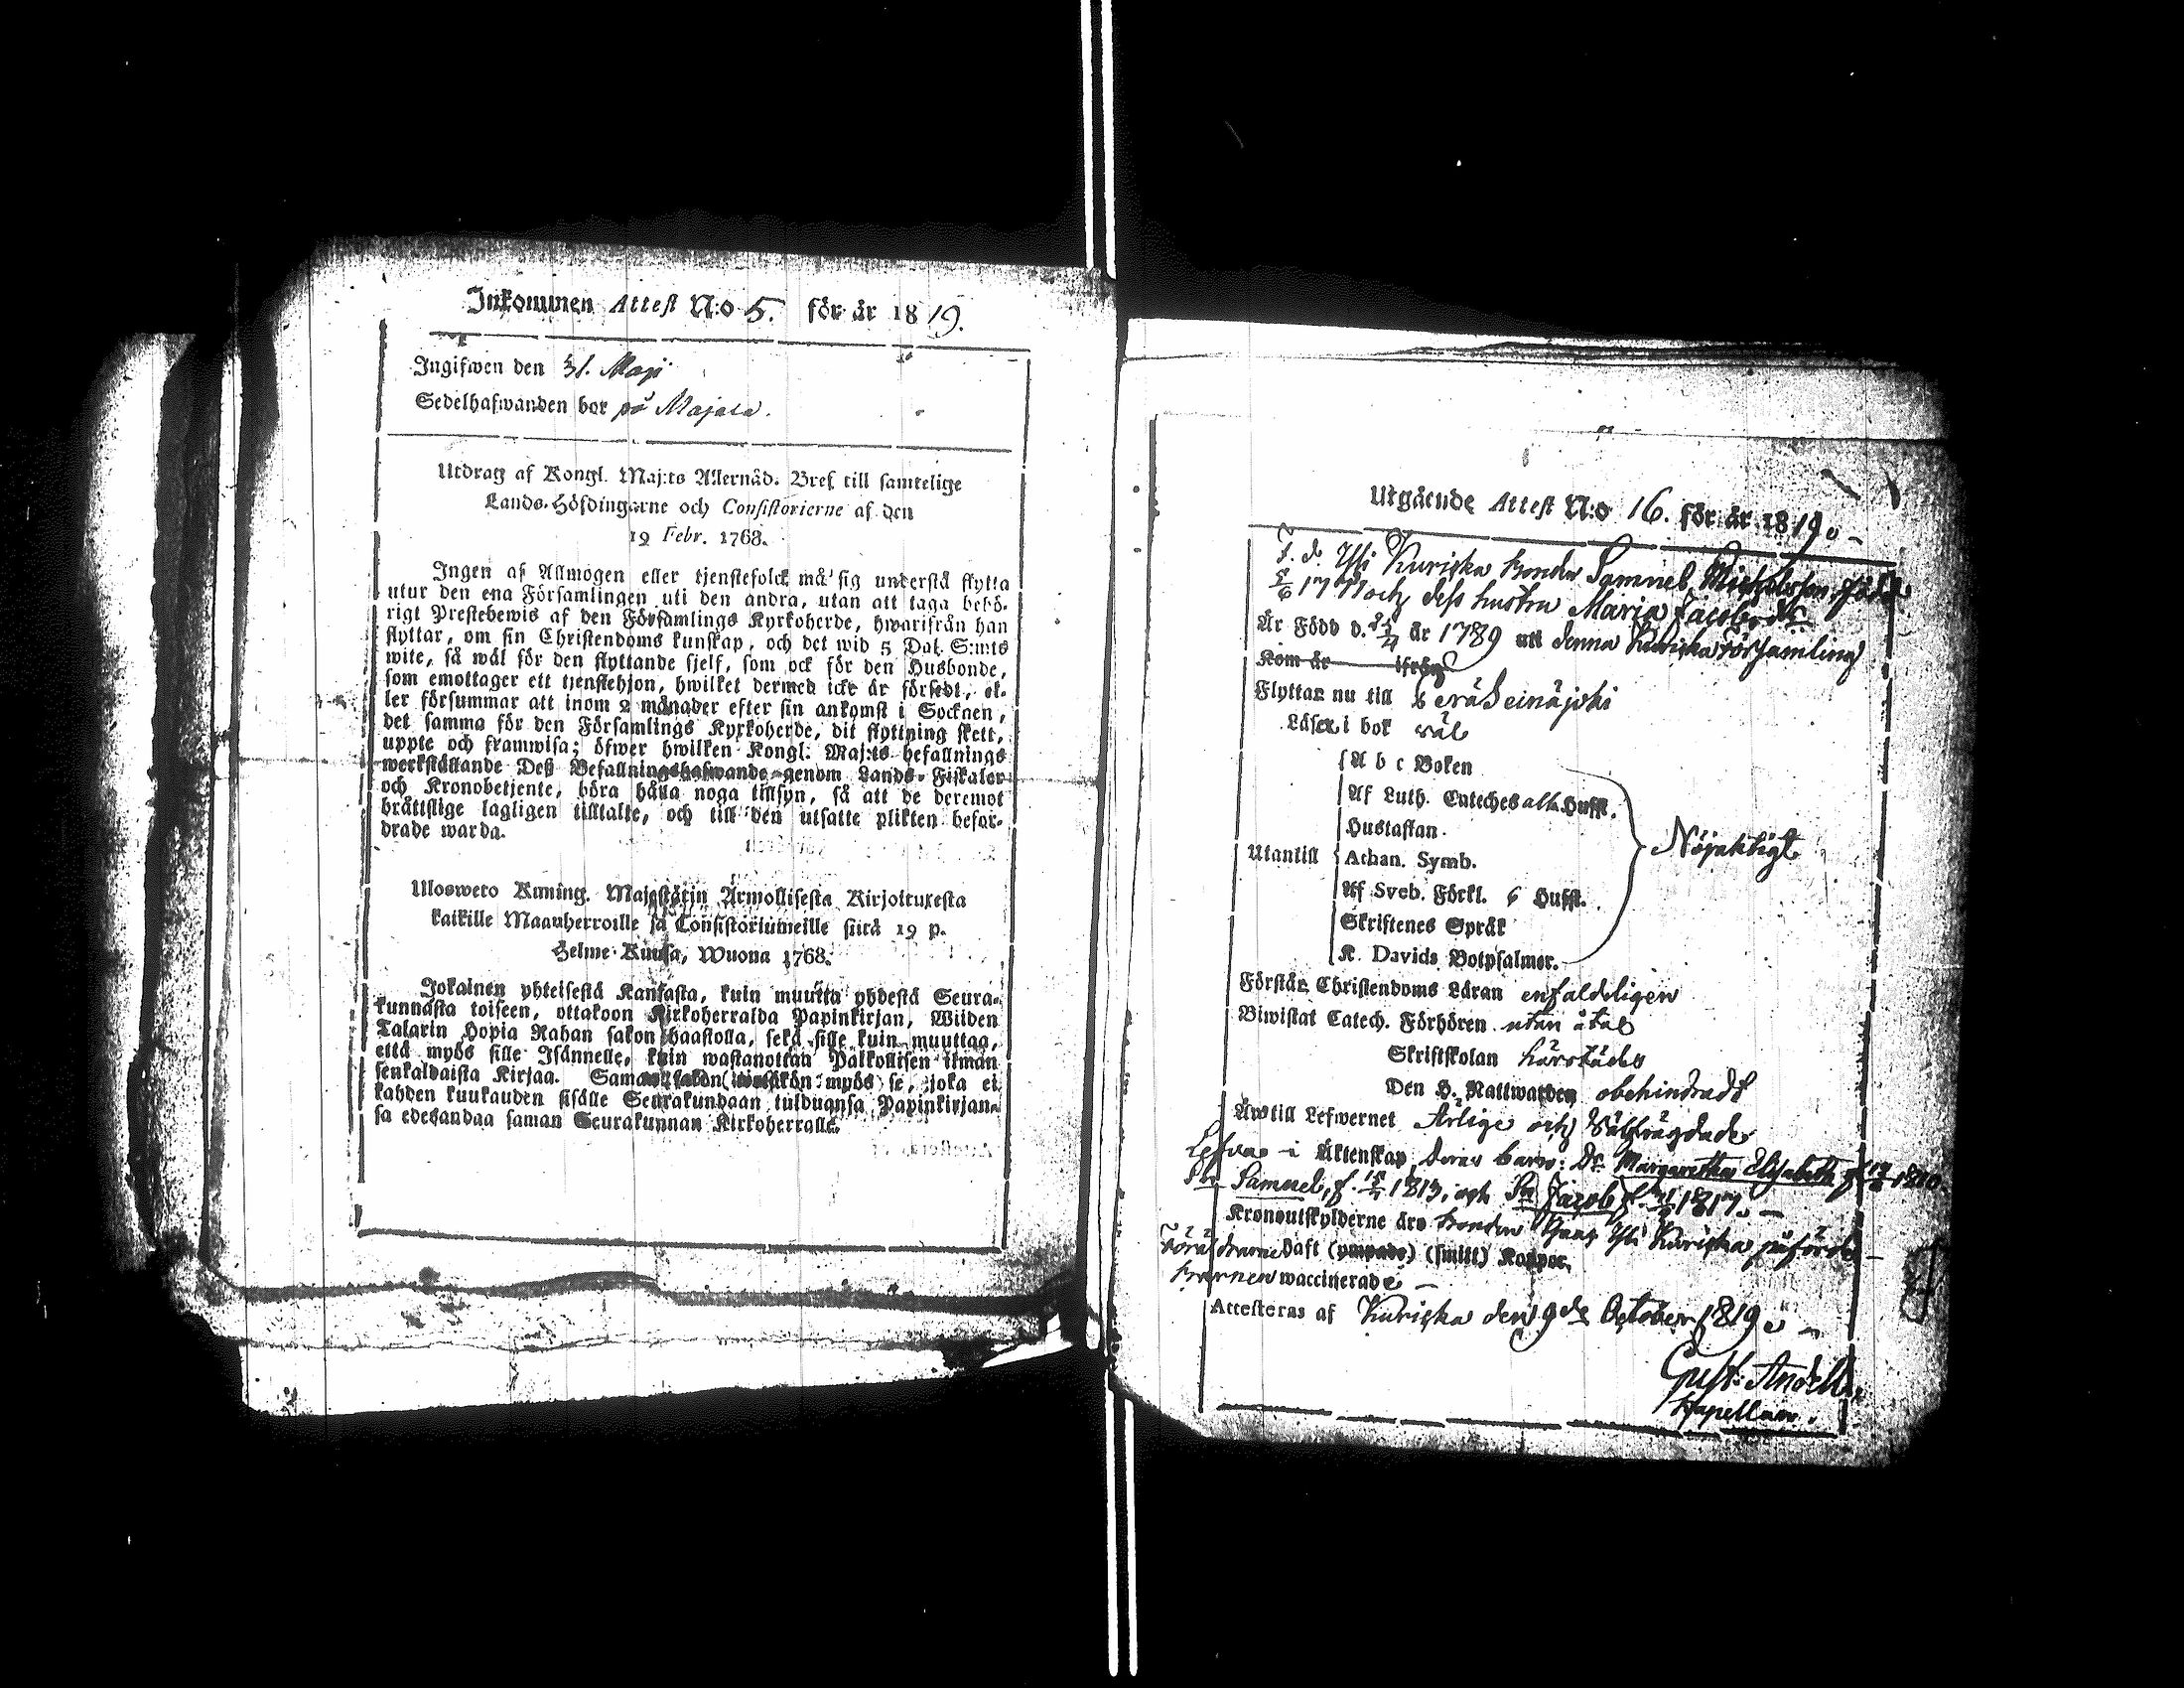 Inkommen Attest N:o 5. för år 1819.
Ingifwen den 31. Maji
Sedelhafwanden bor på Majala.
Utdrag af Kongl. Maj:ts Allernåd. Bref till samtelige
Lands-Höfdingarne och Consistorierne af den
19 Febr. 1768.
Ingen af Allmogen eller tjenstefolck må sig understå flytta
utur den ena Församlingen uti den andra, utan att taga behö-
rigt Prestebewis af den Församlings Kyrkoherde, hwarifrån han
flyttar, om sin Christendoms kunskap, och det wid 5 Dal. S:mts
wite, så wäl för den flyttande sjelf, som ock för den Husbonde,
som emottager ett tjenstehjon, hwilket dermed icke är försedt, el-
ler försummar att inom 2 månader efter sin ankomst i Socknen,
det samma för den Församlings Kyrkoherde, dit flyttning skett,
uppte och framwisa; öfwer hwilken Kongl. Maj:ts befallnings
werkställande Deß Befallningshafwande genom Lands-Fiskaler
och Kronobetjente, böra hålla noga tillsyn, så att de deremot
bråttslige lagligen tilltalte, och till den utsatte plikten befor-
drade warda.
Ulosweto Kuning. Majestätin Armollisesta Kirjoituxesta
kaikille Maanherroille ja Consistoriumeille siitä 19 p.
Helme-Kuusa, Wuona 1768.
Jokainen yhteisestä Kansasta, kuin muutta yhdestä Seura-
kunnasta toiseen, ottakoon Kirkoherralda Papinkirjan, Wiiden
Talarin Hopia Rahan sakon haastolla, sekä sille kuin muuttaa,
että myös sille Isännelle, kuin wastanottaa Palkollisen ilman
senkaldaista Kirjaa. Saman sakon wetäkön myös se, joka ei
kahden kuukauden sisälle Seurakundaan tulduansa Papinkirjan-
sa edesandaa saman Seurakunnan Kirkoherralle.
Utgående Attest N:o 16. för år 1819.
f. d. Yli Kuricka bonden Samuel Michelsson född
17 och dess hustru Maria Jacobsdr
Är Född d. år 1789 uti denna Kuricka Församling
Kom år ifrån
Flyttar nu till Seinäjoki
Läser i bok väl
A b c Boken
Af Luth. Cateches alla Hufst.
Hustaflan.
Utantill Athan. Symb. Nöjaktigt
Af Sveb. Förkl. 6 Hufst.
Skriftenes Språk
K. Davids Botpsalmer.
Förstår Christendoms Läran enfaldeligen
Biwistat Catech. Förhören utan åtal
Skriftskolan härstädes
Den H. Nattwarden obehindradt
Äro till Lefwernet Ärlige och Välfrägdade
Lefva i Äktenskap, deras barn: Dr Margaretha Elisabeth f. 1810
Sn Samuel, f. 1813, och Sn Jacob f. 1817.
Kronoutskylderne äro bonden Yli Kuricka påförde
Föräldrarne haft (ympade) (smitt) Koppor.
barnen waccinerade
Attesteras af Kuricka den 9de October 1819.
Gust: Andell.
Kapellan.